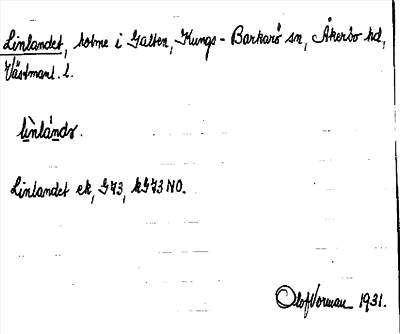 Linlandet, holme i Galten, Kungs-Barkarö sn, Åkerbo hd,
Västmanl. l.
lìnlándə.
Linlandet ek, G43, kG43 NO.
Olof Norman 1931.